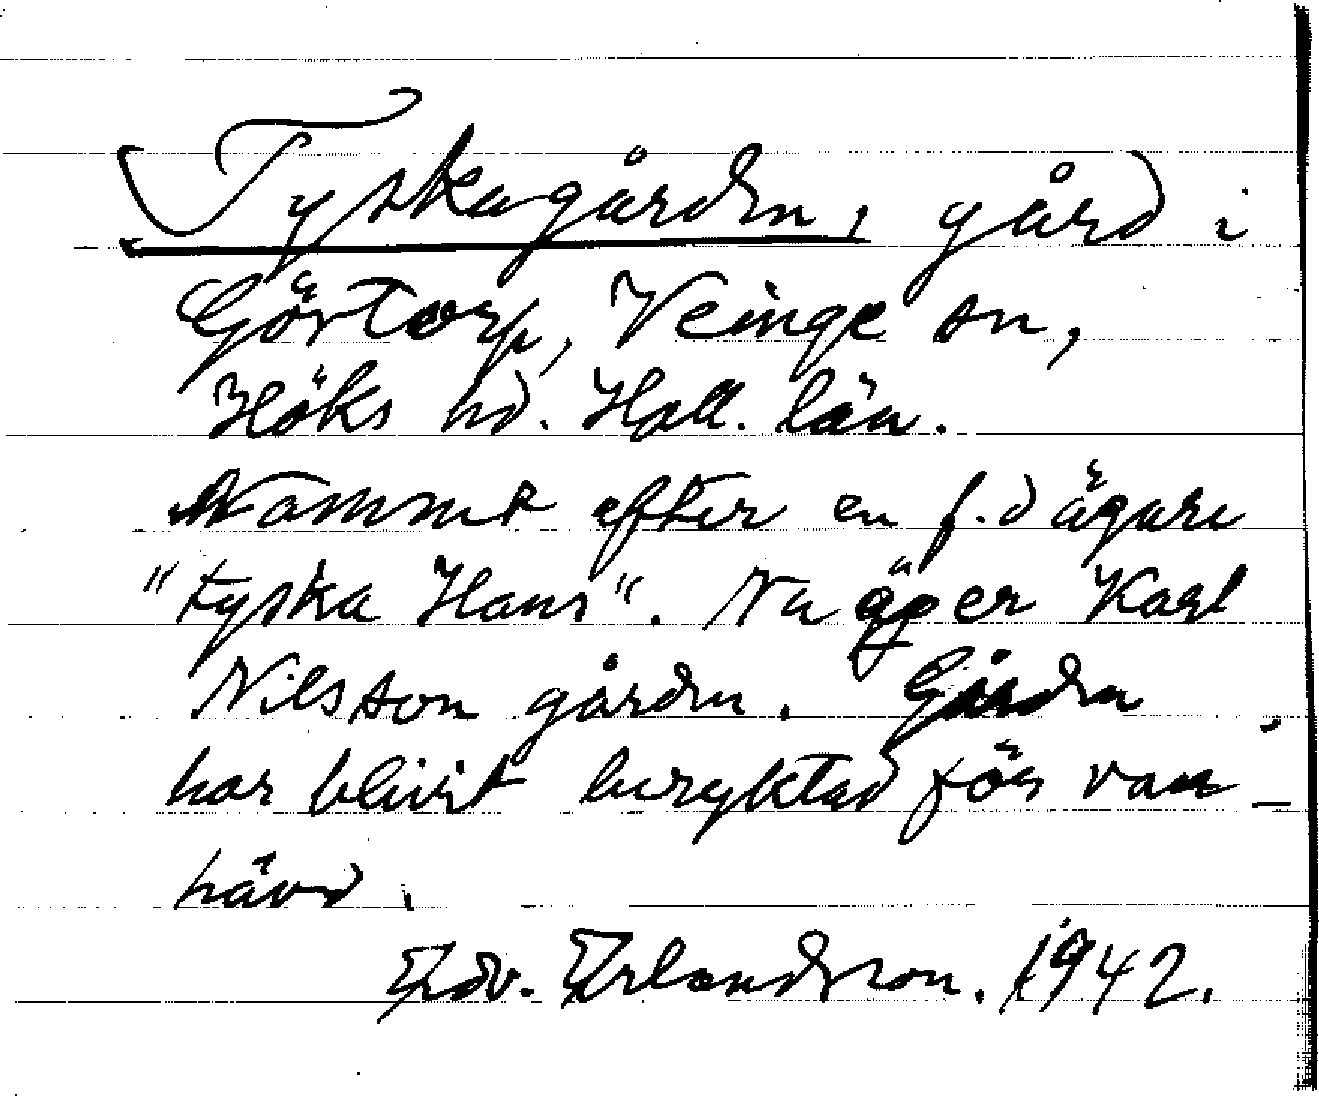 Tyskagården, gård i
Görtorp, Veinge sn,
Höks hd. Hall. län.
Namnet efter en f.d ägare
"tyska Hans". Nu äger Karl
Nilsson gården. Gården
har blivit beryktad för van-
hävd.
Edv. Erlandsson. 1942.